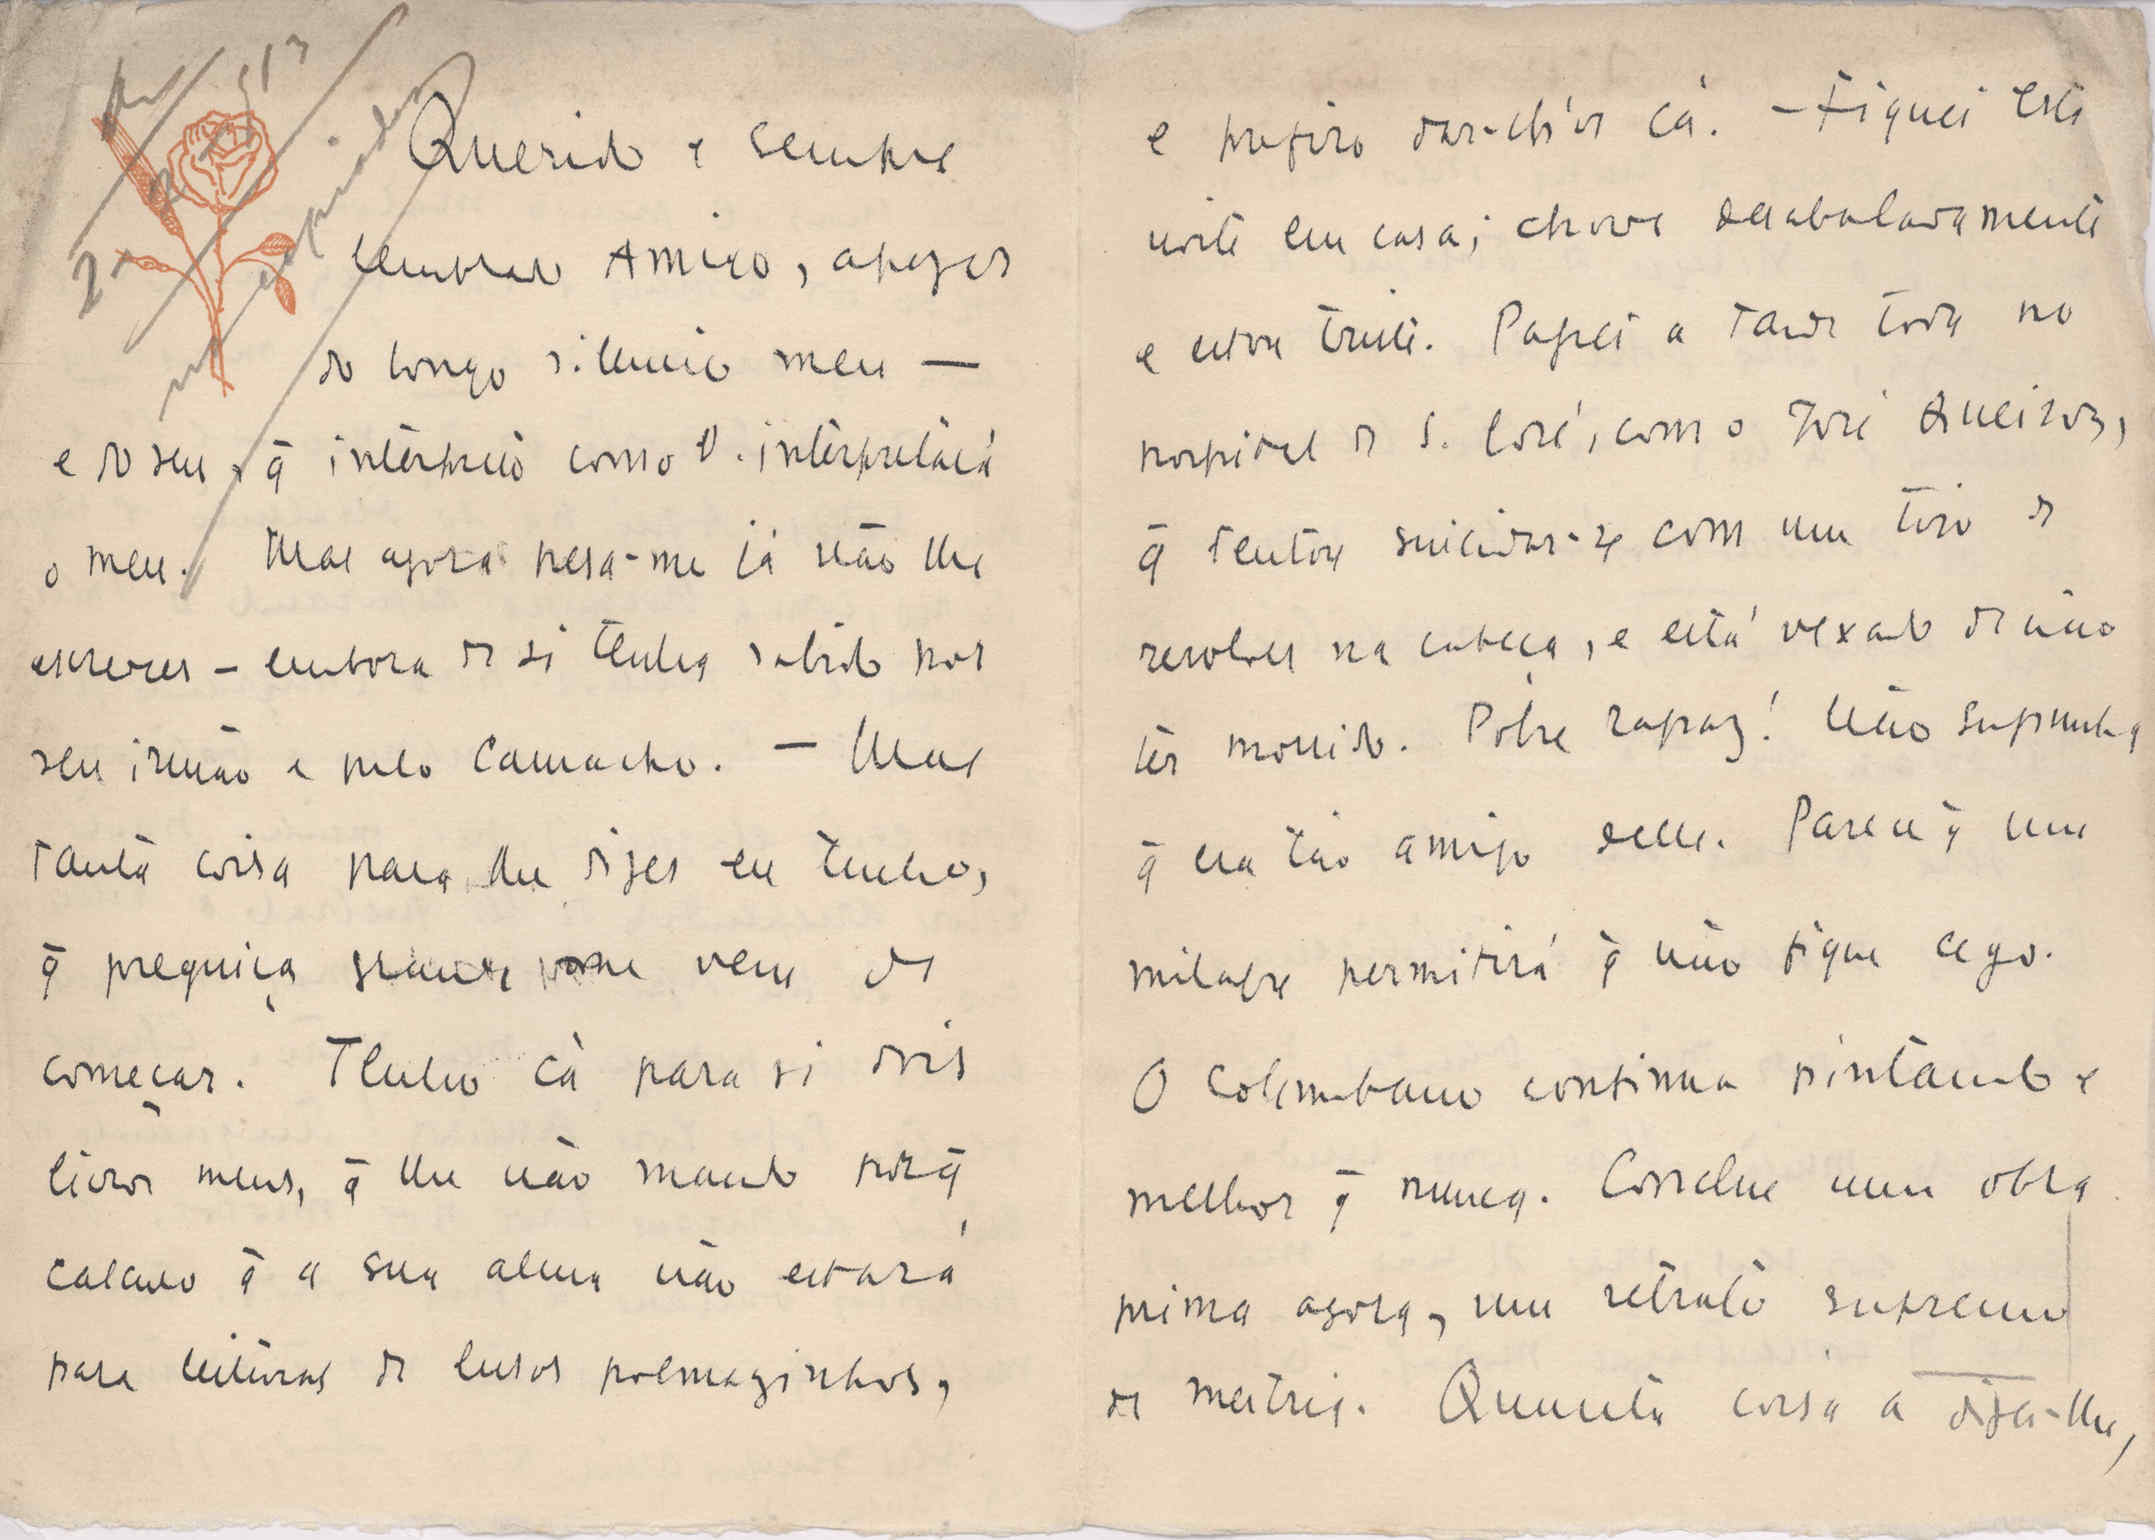 Querido e sempre
lembrado Amigo, apezar
do longo silencio meu —
e do seu, q̄ interpreto como V. interpretará
o meu. Mas agora pesa-me já não lhe
escrever – embora de si tenha sabido por
seu irmão e pelo Camacho. — Mas
tanta coisa para lhe dizer eu tenho,
q̄ preguiça grande me vem de
começar. Tenho cá para si dois
livros meus, q̄ lhe não mando porq̄
calculo q̄ a sua alma não estará
para leituras de lusos poemazinhos,
e prefiro dar-lh'os cá. – Fiquei esta
noite em casa; chove desabaladamente
e estou triste. Passei a tarde toda no
hospital de S. José, com o José Queiroz,
q̄ tentou suicidar-se com um tiro de
revolver na cabeça, e está vexado de não
ter morrido. Pobre rapaz! Não supunha
q̄ era tão amigo delle. Parece q̄ um
milagre permitirá q̄ não fique cego.
O Columbano continua pintando e
melhor q̄ nunca. Conclue uma obra
prima agora, um retrato supremo
de mestria. Quanta coisa a dizer-lhe,